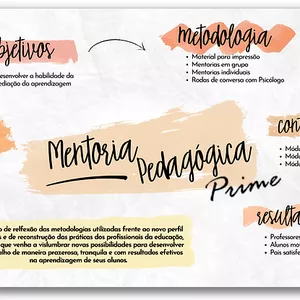 objetivos
desenvolver a habilidade da
mediação da aprendizagem
metodologia
• Material para impressão
• Mentorias em grupo
• Mentorias individuais
• Rodas de conversa com Psicólogo
Mentoria
Pedagógica
Prime
cont
• Módu
• Módu
• Módu
o de relfexão das metodologias utilizadas frente ao novo perfil
s e de reconstrução das práticas dos profissionais da educação,
que venha a vislumbrar novas possibilidades para desenvolver
alho de maneira prazerosa, tranquila e com resultados efetivos
na aprendizagem de seus alunos.
resulta
Professores
Alunos mo
Pais satisfe